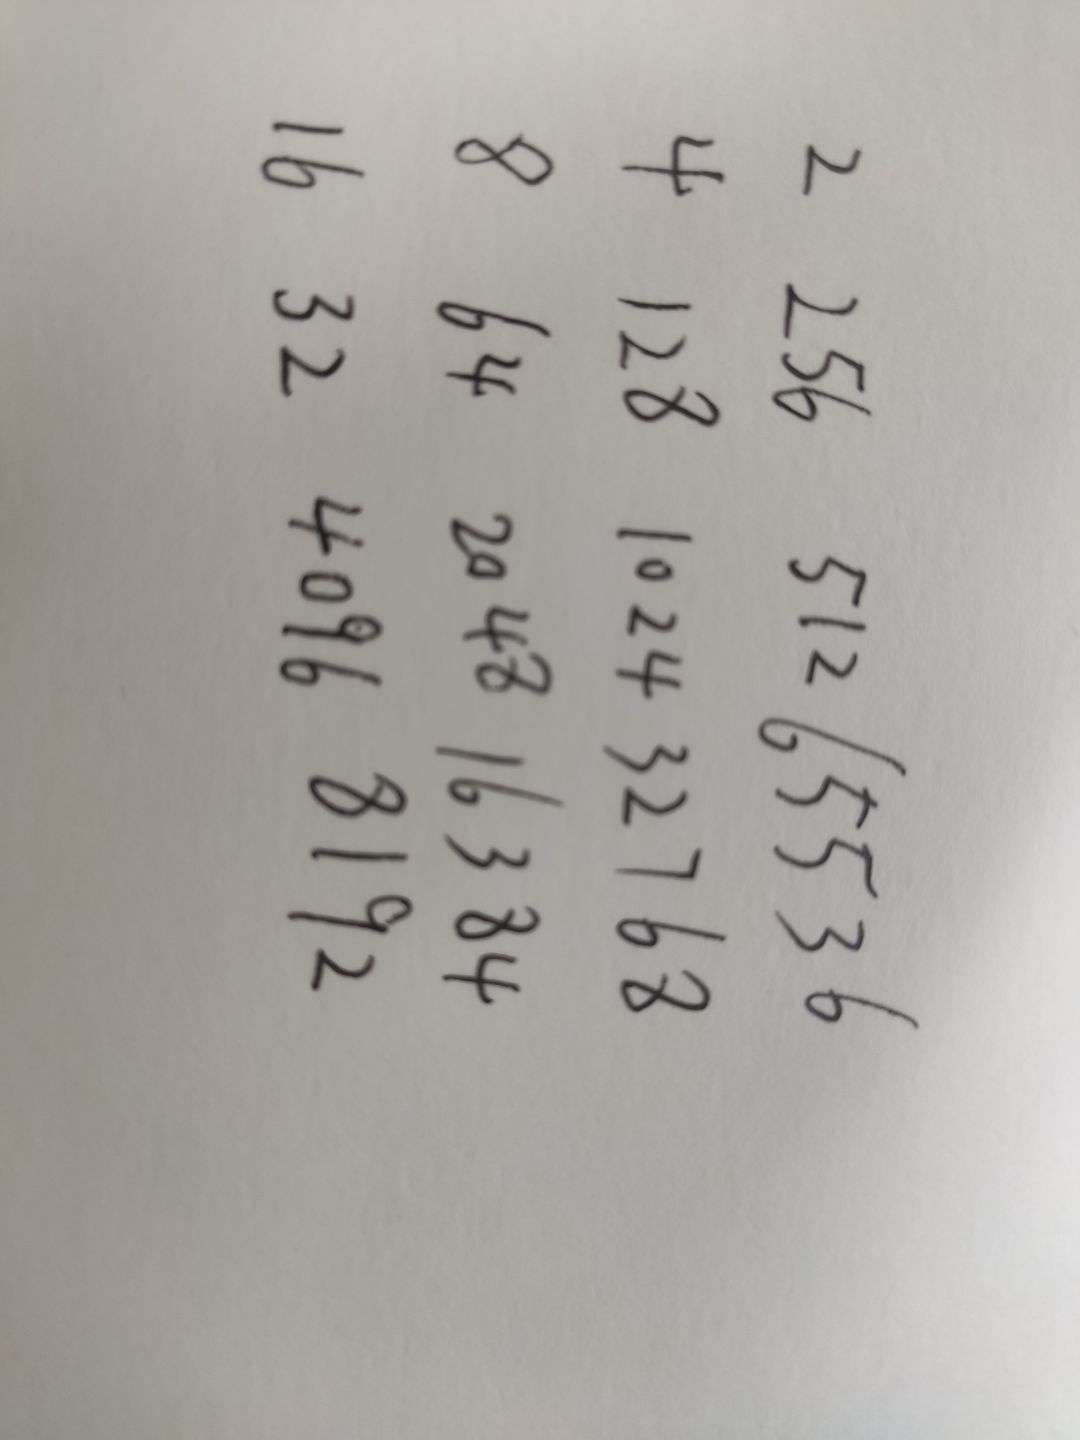 2 256 512 65536
4 128 1024 32768
8 64 2048 16384
16 32 4096 8192